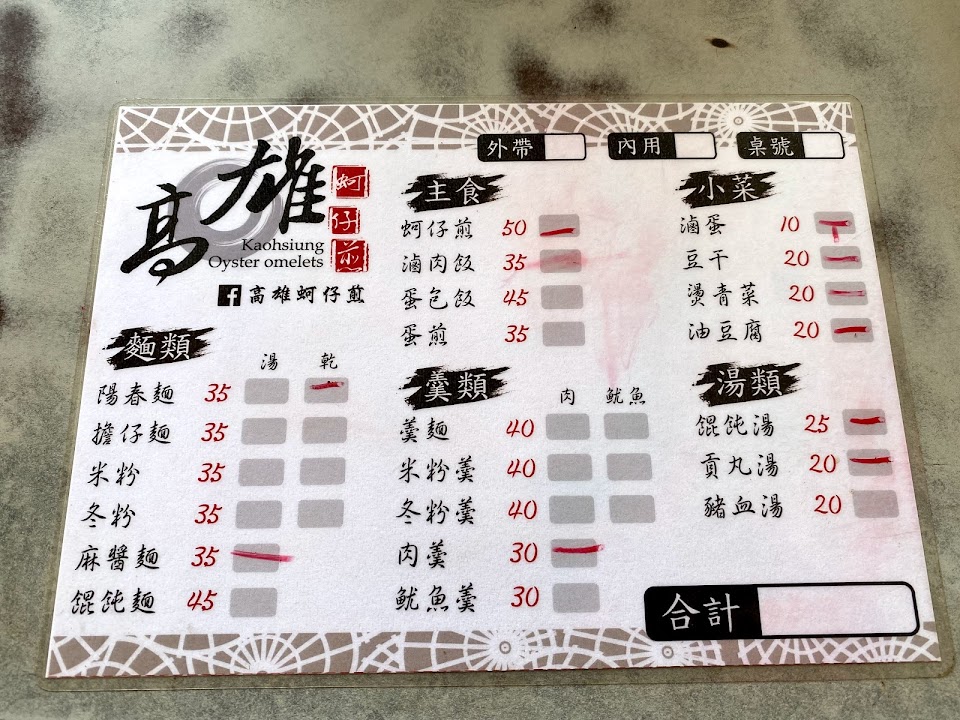 外帶 內用 桌號
高雄 蚵仔煎
Kaohsiung
Oyster omelets
f 高雄蚵仔煎
主食
蚵仔煎 50
滷肉飯 35
蛋包飯 45
蛋煎 35
小菜
滷蛋 10
豆干 20
燙青菜 20
油豆腐 20
麵類
湯 乾
陽春麵 35
擔仔麵 35
米粉 35
冬粉 35
麻醬麵 35
餛飩麵 45
羹類
肉 魷魚
羹麵 40
米粉羹 40
冬粉羹 40
肉羹 30
魷魚羹 30
湯類
餛飩湯 25
貢丸湯 20
豬血湯 20
合計